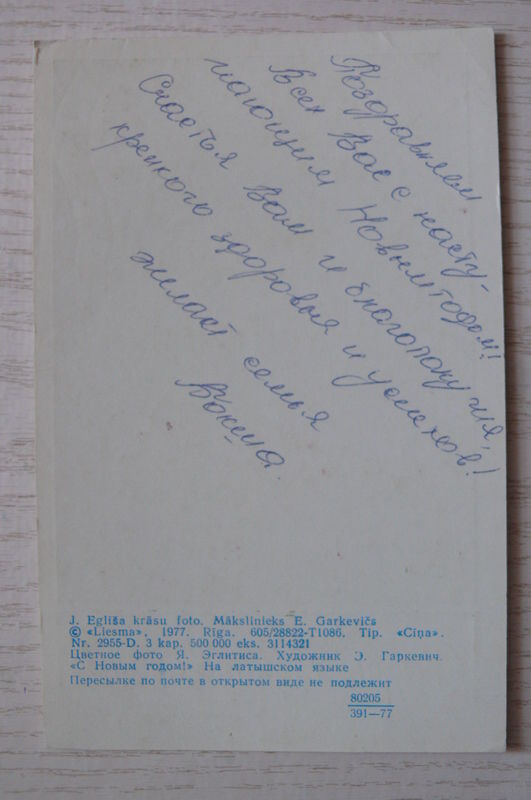 Поздравляем
Всех Вас с насту-
пающим Новым годом!
Счастья Вам и благополучия,
крепкого здоровья и успехов!
желает семья
J. Eglīša krāsu foto. Mākslinieks E. Garkevičs
© «Liesma», 1977. Rīga. 605/28822-T1086. Tip. «Cīņa».
Nr. 2955-D. 3 kap. 500 000 eks. 3114321
Цветное фото Я. Эглитиса. Художник Э. Гаркевич.
«С Новым годом!» На латышском языке
Пересылке по почте в открытом виде не подлежит
80205
391—77